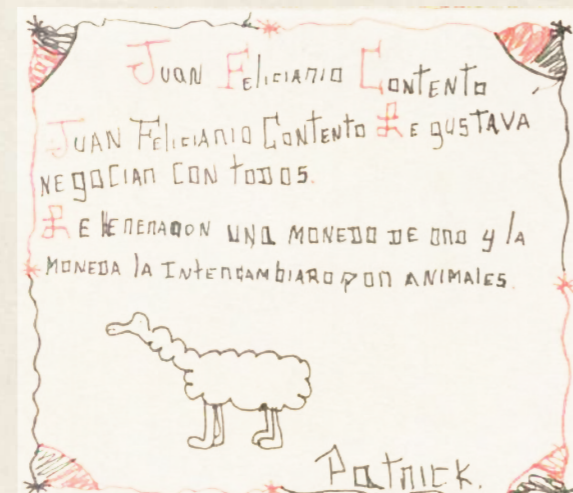 JUAN FELICIANO CONTENTO
JUAN FELICIANO CONTENTO LE gUSTAVA
NEgOCIAR CON TODOS.
LE UNA MONEDA DE ORO y lA
MONEDA lA INTERCAMbIARO POR ANIMAlES.
PATRICK.